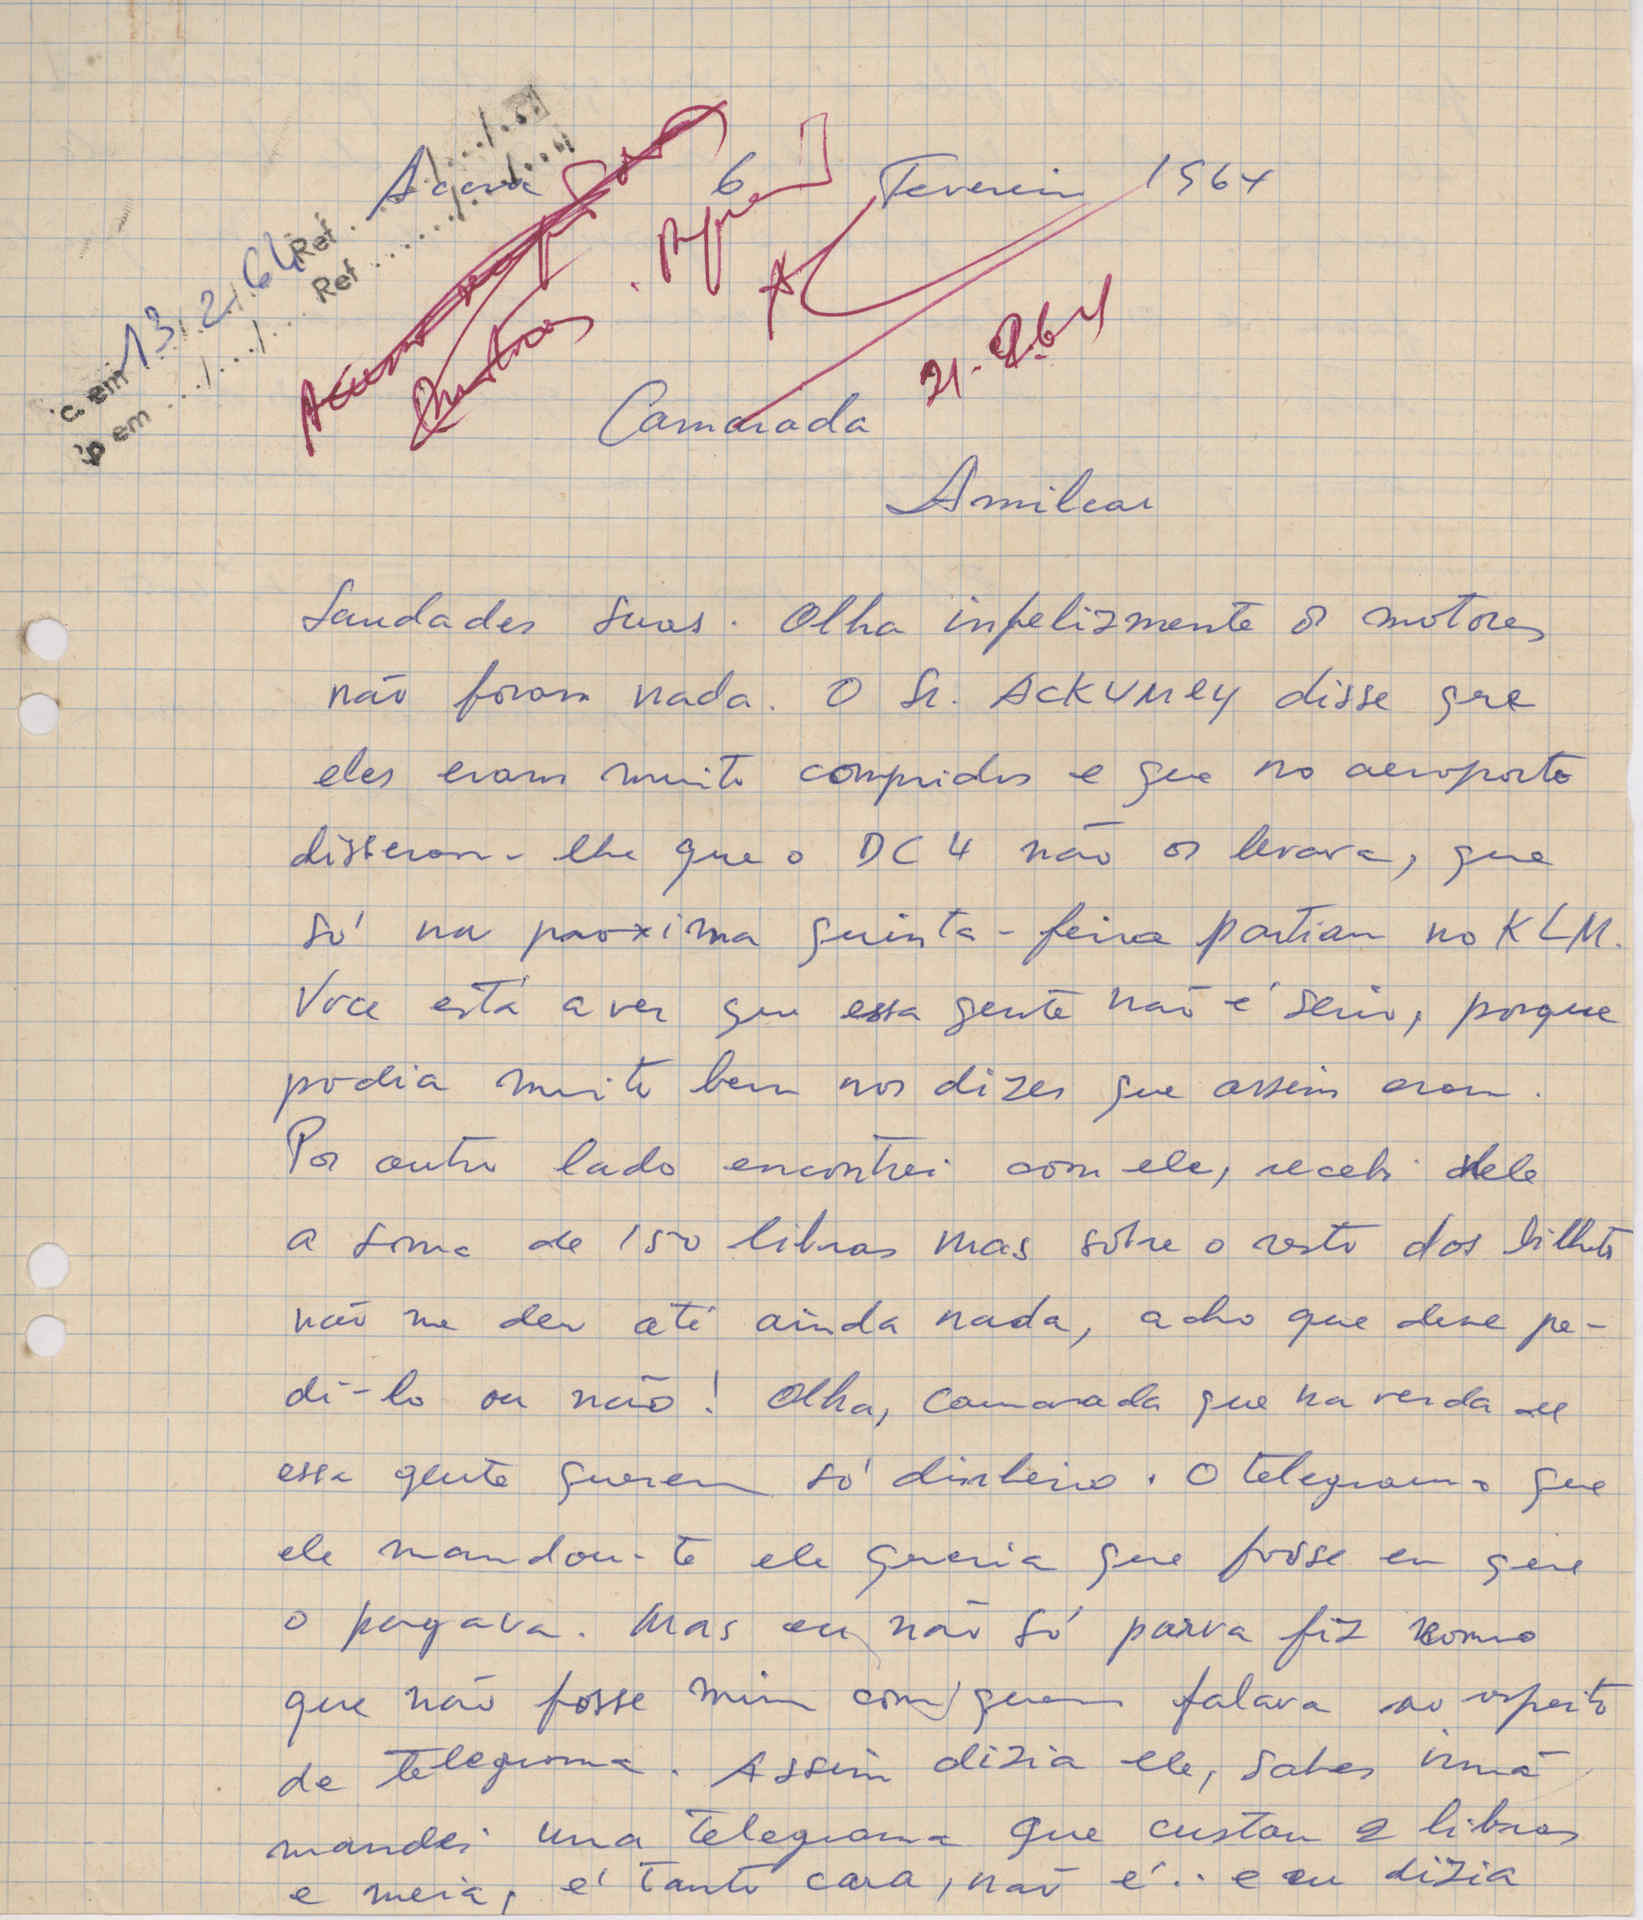 Accra 6 Fevereiro 1964
Rec. em 13.2.64 Ref
Rp em Ref
21.2.64
Camarada
Amilcar
Saudades suas. Olha infelizmente os motores
não foram nada. O Sr. ACKUMEY disse que
eles eram muito compridos e que no aeroporto
disseram-lhe que o DC4 não os levava, que
só na proxima quinta-feira partiam no KLM.
Voce está a ver que essa gente não é serio, porque
podia muito bem nos dizer que assim eram.
Por outro lado encontrei com ele, recebi dele
a soma de 150 libras mas sôbre o resto dos bilhetes
não me deu até ainda nada, acho que deve pe-
di-lo ou não! Olha, camarada que na verdade
essa gente querem só dinheiro. O telegrama que
ele mandou-te ele queria que fosse eu que
o pagava. Mas eu não só parva fiz como
que não fosse mim com quem falava ao respeito
de telegrama. Assim dizia ele, sabes irmã
mandei una telegrama que custou 2 libras
e meia, é tanto cara, não é.. e eu dizia